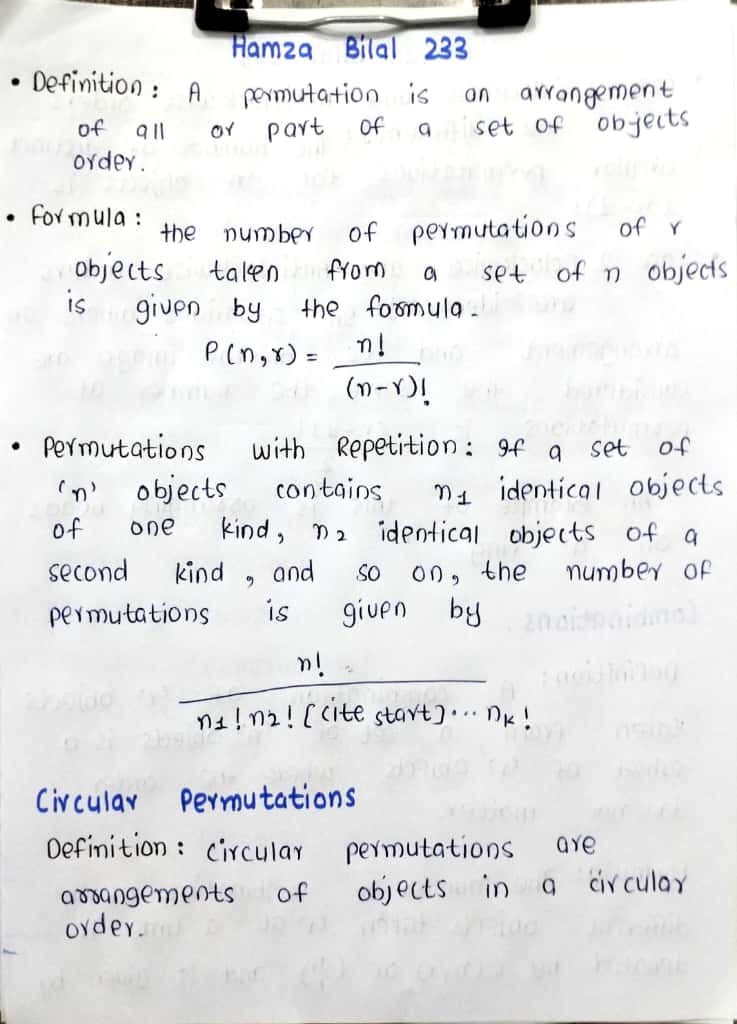 Hamza Bilal 233
• Definition : A permutation is an arrangement
of all or part of a set of objects
order.
• Formula : the number of permutations of r
objects taken from a set of n objects
is given by the formula.
P(n,r) = n!
(n-r)!
• Permutations with Repetition : If a set of
'n' objects contains n1 identical objects
of one kind, n2 identical objects of a
second kind, and so on, the number of
permutations is given by
n!
n1! n2! [cite start]... nk!
Circular Permutations
Definition : Circular permutations are
arrangements of objects in a circular
order.